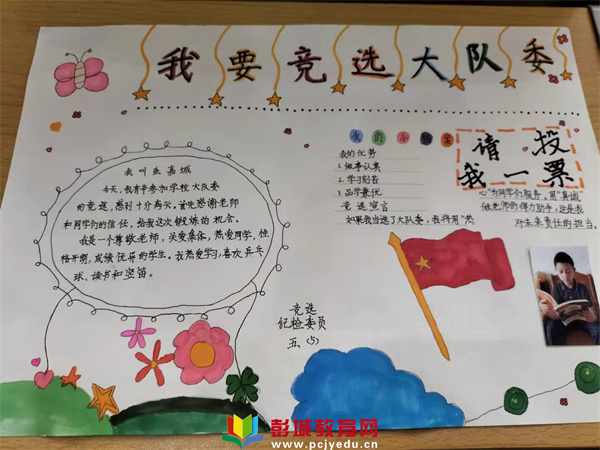 我要竞选大队委
我叫朱嘉城
今天,我有幸参加学校大队委
的竞选,感到十分高兴。首先感谢老师
和同学们的信任,给我这次锻炼的机会。
我是一个尊敬老师,关爱集体,热爱同学,性
格开朗,成绩优异的学生。我热爱学习,喜欢乒乓
球,读书和竖笛。
我的小
我的优势
1.做事认真
2.学习刻苦
3.品学兼优
竞选宣言
如果我当选了大队委,我将用“热
请投
我一票
心”为同学们服务。用“真诚
做老师的得力助手,这是我
对未来责任的担当。
竞选
纪检委员
五、(5)
彭城教育网
www.pcjyedu.cn